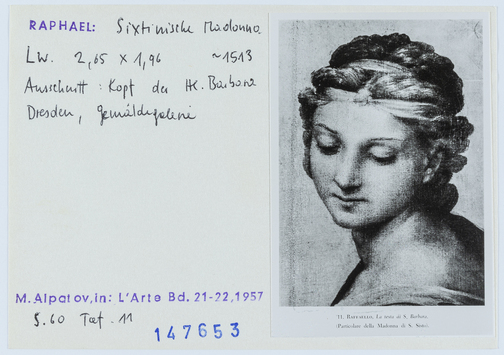 RAPHAEL: Sixtinische Madonna
Lw. 2,65 x 1,96 ~1513
Ausschnitt: Kopf der Hl. Barbara
Dresden, Gemäldegalerie
M.Alpatov, in: L'Arte Bd. 21-22, 1957
S. 60 Taf. 11
147653
11. RAFFAELLO, La testa di S. Barbara.
(Particolare della Madonna di S. Sisto).